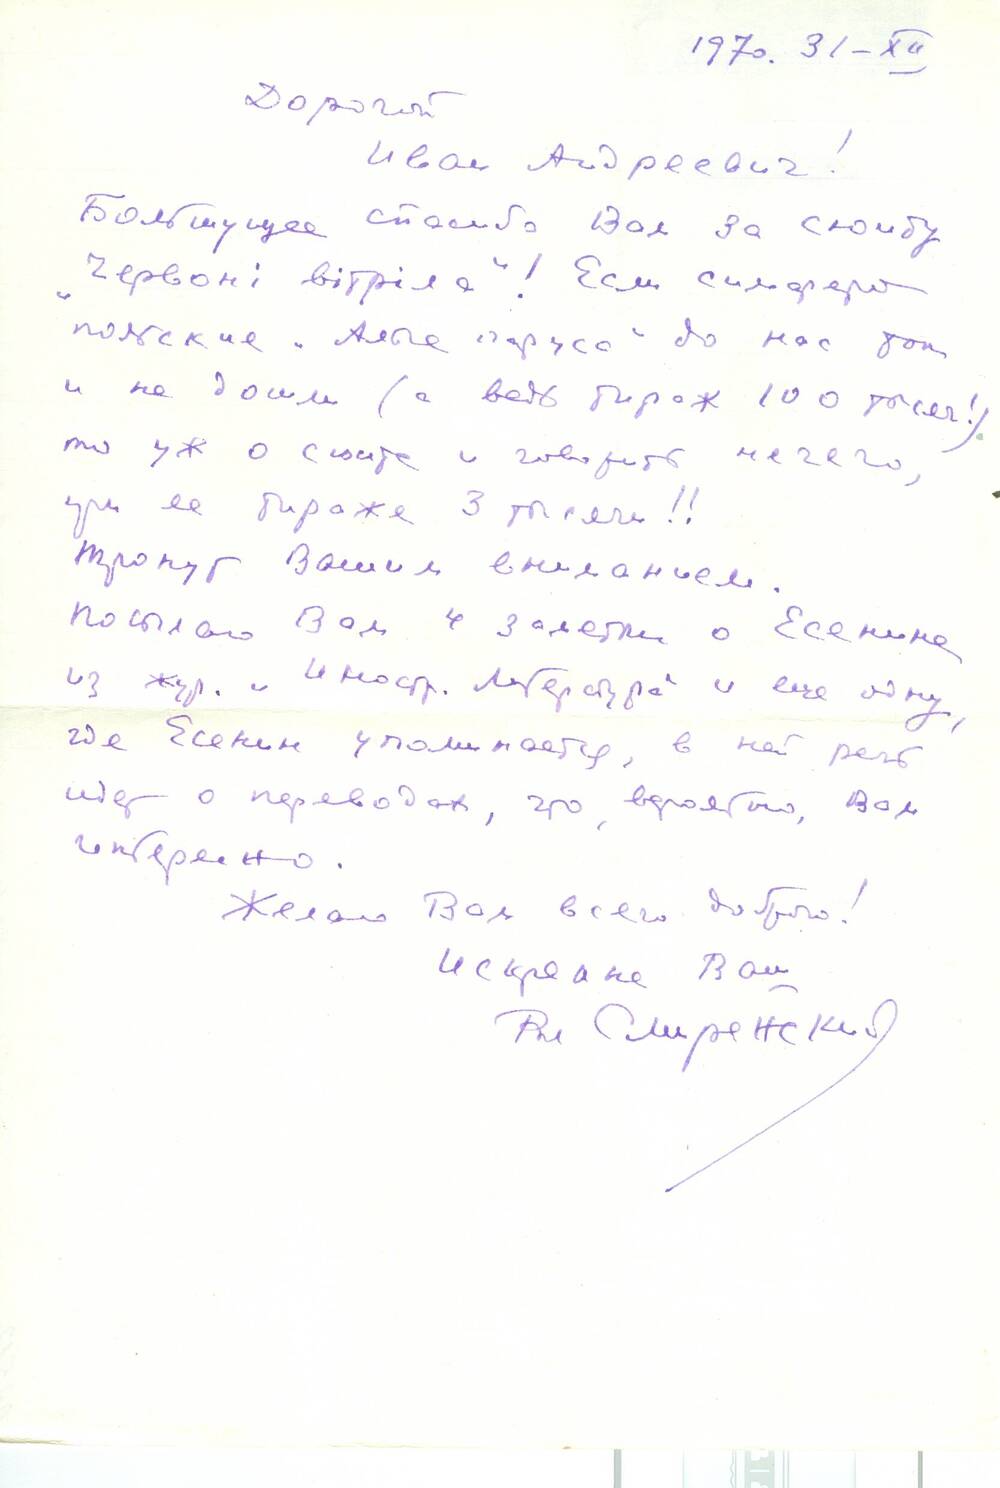 1970. 31–XII
Дорогой
Иван Андреевич!
Большущее спасибо Вам за сюиту
„Червоні вітріла“! Если симферо-
польские „Алые паруса“ до нас так
и не дошли (а ведь тираж 100 тысяч!),
то уж о сюите и говорить нечего,
при ее тираже 3 тысячи!!
Тронут Вашим вниманием.
Посылаю Вам 4 заметки о Есенине
из жур. „Иностр. Литература“ и еще одну,
где Есенин упоминается, в ней речь
идет о переводах, что, вероятно, Вам
интересно.
Желаю Вам всего доброго!
Искренне Ваш
Вл Смиренский